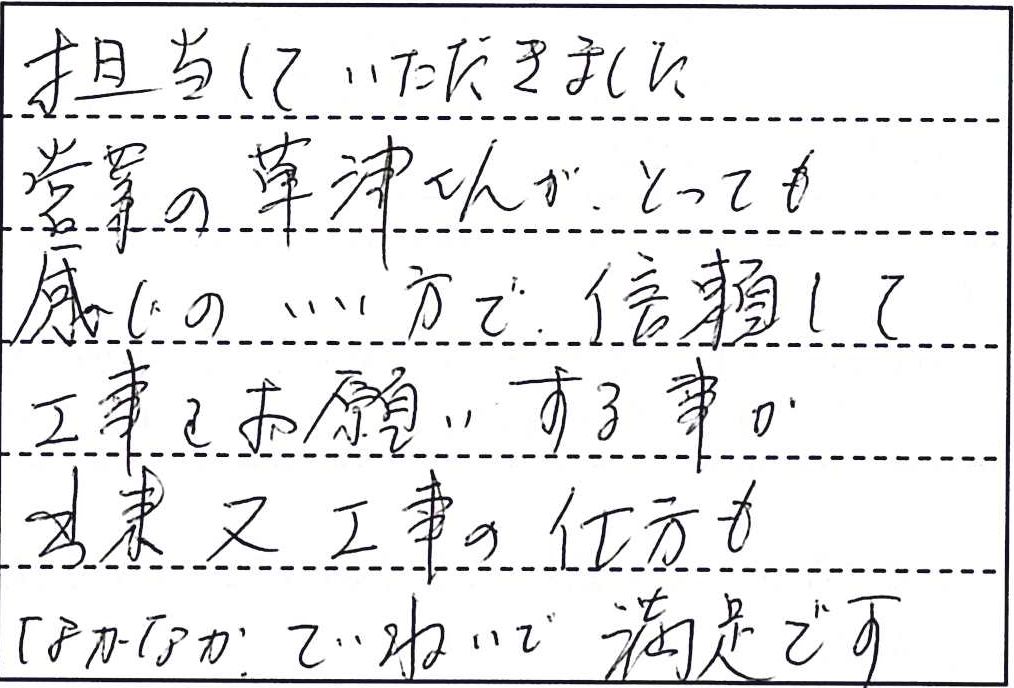 担当していただきました
営業の草津くんが、とっても
感じのいい方で、信頼して
工事をお願いする事が
出来又工事の仕方も
なかなかていねいで満足です